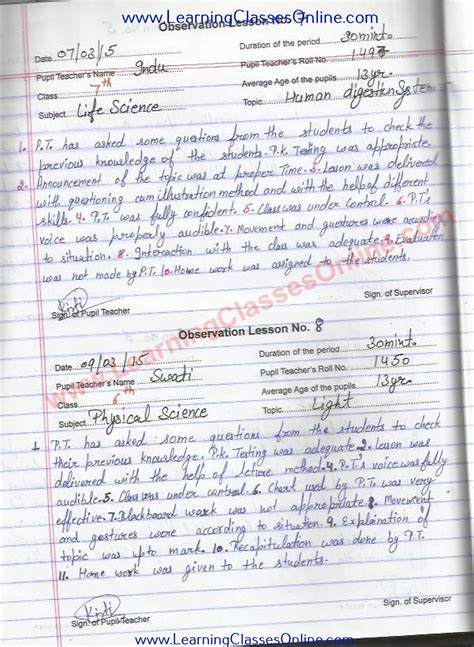 www.LearningClassesOnline.com
Observation Lesson No. 7
Date 07/03/15 Duration of the period 30mint.
Pupil Teacher's Name Indu Pupil Teacher's Roll No. 1497
Class 7th Average Age of the pupils 13yr.
Subject Life Science Topic Human digestion System
1. P.T. has asked some questions from the students to check the
previous knowledge of the students. P.k. Testing was appropriate.
2. Announcement of the topic was at proper Time. 3. Lesson was delivered
with questioning cum illustration method and with the help of different
skills. 4. P.T. was fully confident. 5. Class was under Control. 6. P.T's
voice was properly audible. 7. Movement and gestures were according
to situation. 8. Interaction with the class was adequate. 9. Evaluation
was not made by P.T. 10. Home work was assigned to the students.
Sign. of Pupil Teacher Sign. of Supervisor
www.LearningClassesOnline.com
Observation Lesson No. 8
Date 09/03/15 Duration of the period 30mint.
Pupil Teacher's Name Swati Pupil Teacher's Roll No. 1450
Class 6th Average Age of the pupils 13yr.
Subject Physical Science Topic Light
1. P.T. has asked some questions from the students to check
their previous knowledge. P.k. Testing was adequate. 2. Lesson was
delivered with the help of lecture method. 4. P.T's voice was fully
audible. 5. Class was under control. 6. Chart used by P.T. was very
effective. 7. Blackboard work was not appropriate 8. Movement
and gestures were according to situation. 9. Explanation of
topic was upto mark. 10. Recapitulation was done by P.T.
11. Home work was given to the students.
Sign. of Pupil Teacher Sign. of Supervisor
www.LearningClassesOnline.com